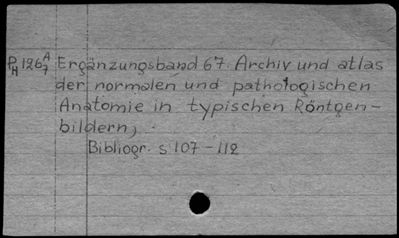 PH 126 A7 Ergänzungsband 67. Archiv und atlas
der normalen und pathologischen
Anatomie in typischen Röntgen-
bildern,
Bibliogr. s 107-112